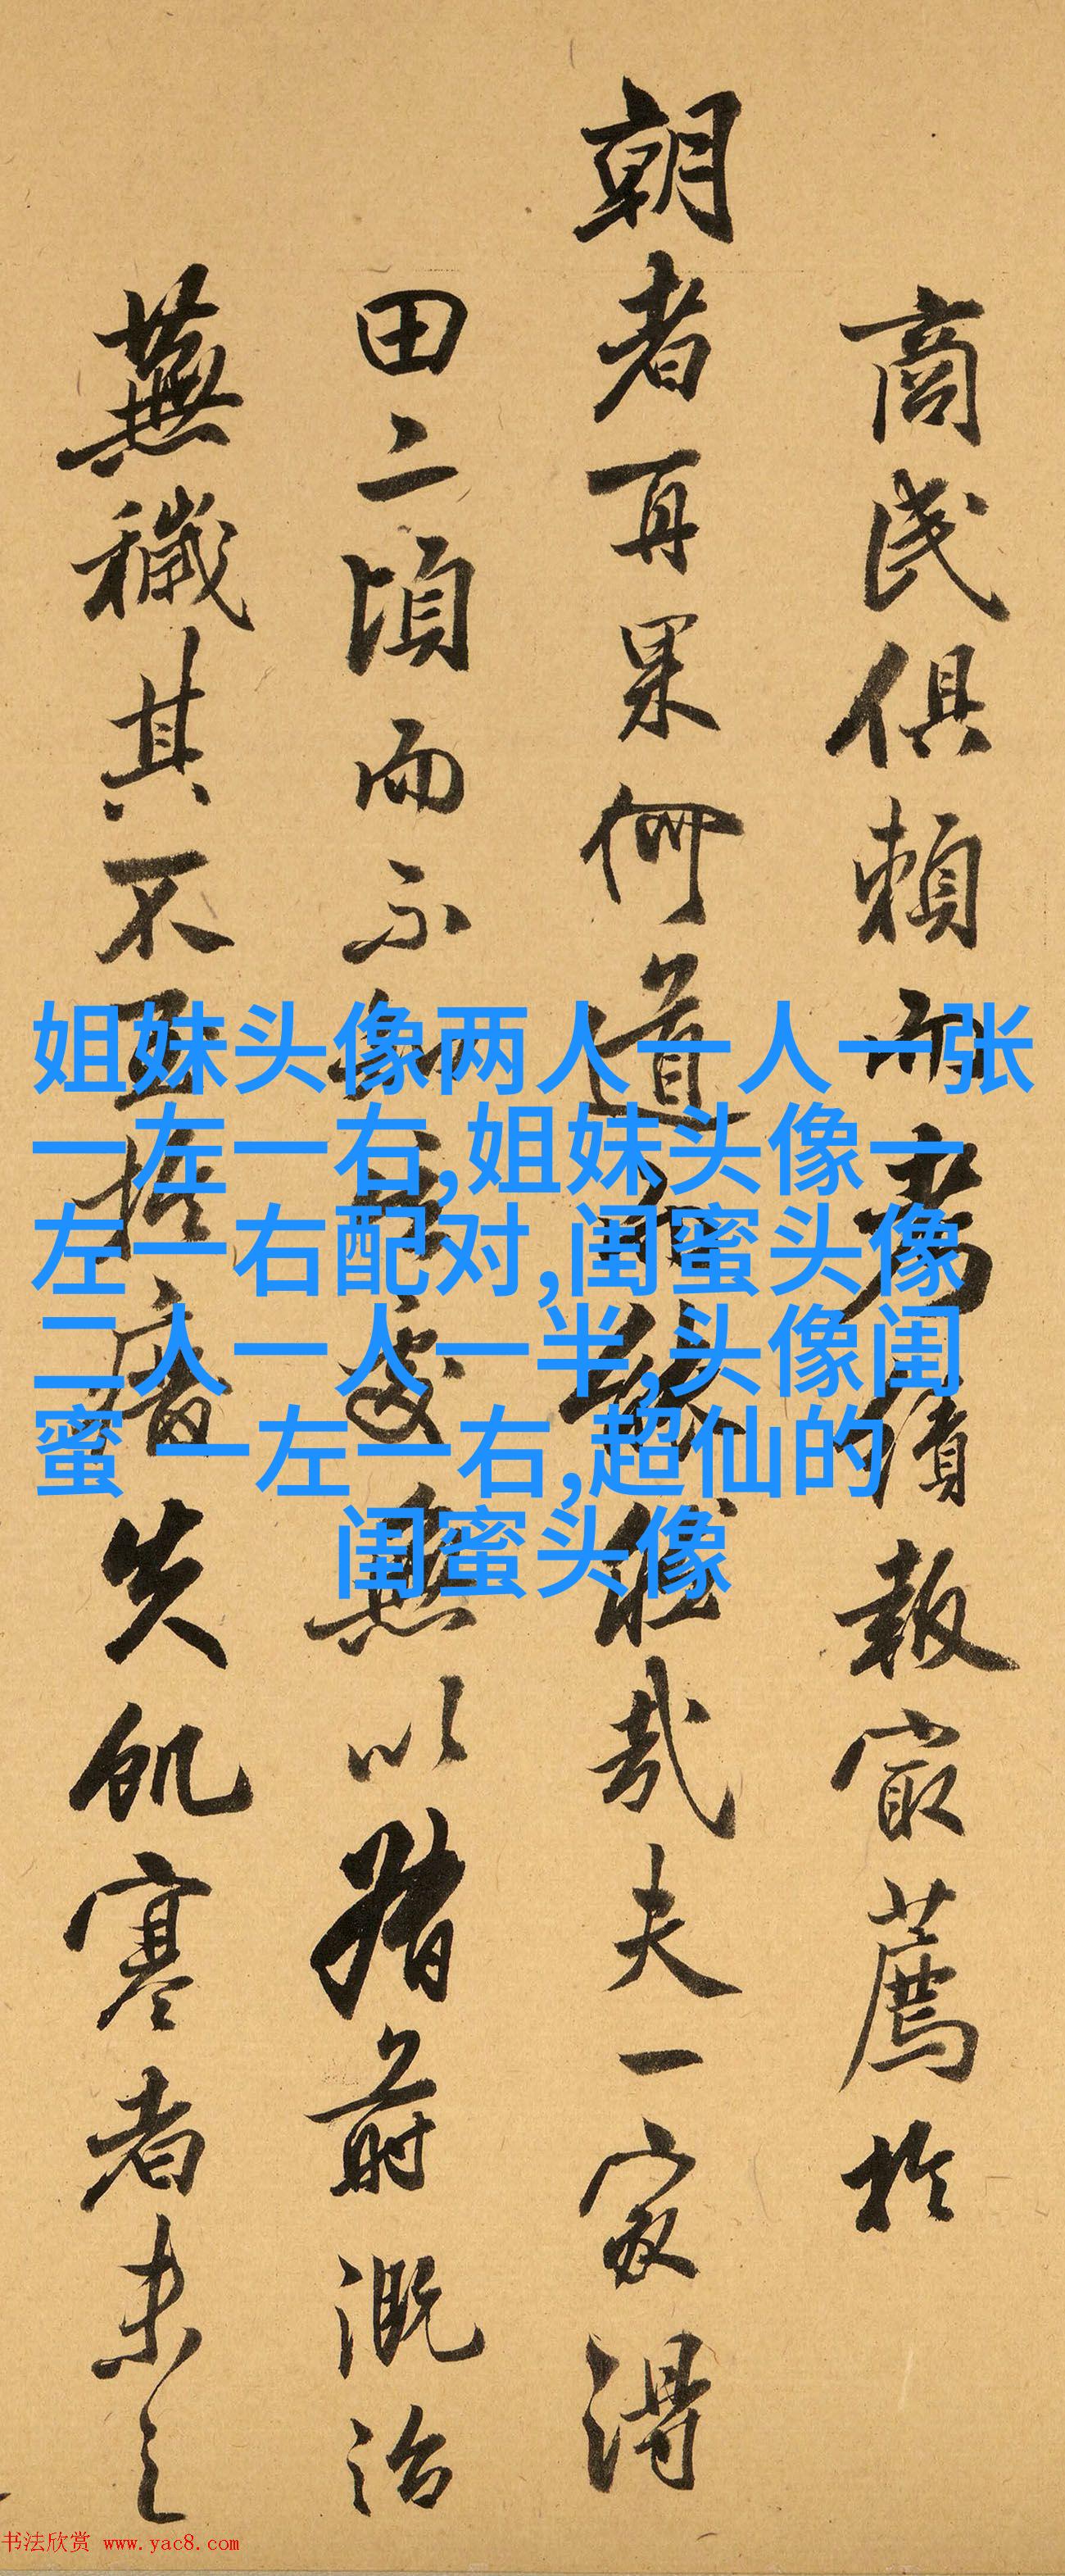 商民俱賴而為績報寂薦於
朝者再果何道哉夫一家得
田二頃而不無以稽前溉治
蕪穢其不失飢寒者未之
姐妹头像两人一人一张
一左一右,姐妹头像一
左一右配对,闺蜜头像
二人一人一半,头像闺
蜜 一左一右,超仙的
闺蜜头像
书法欣赏 www.yac8.com